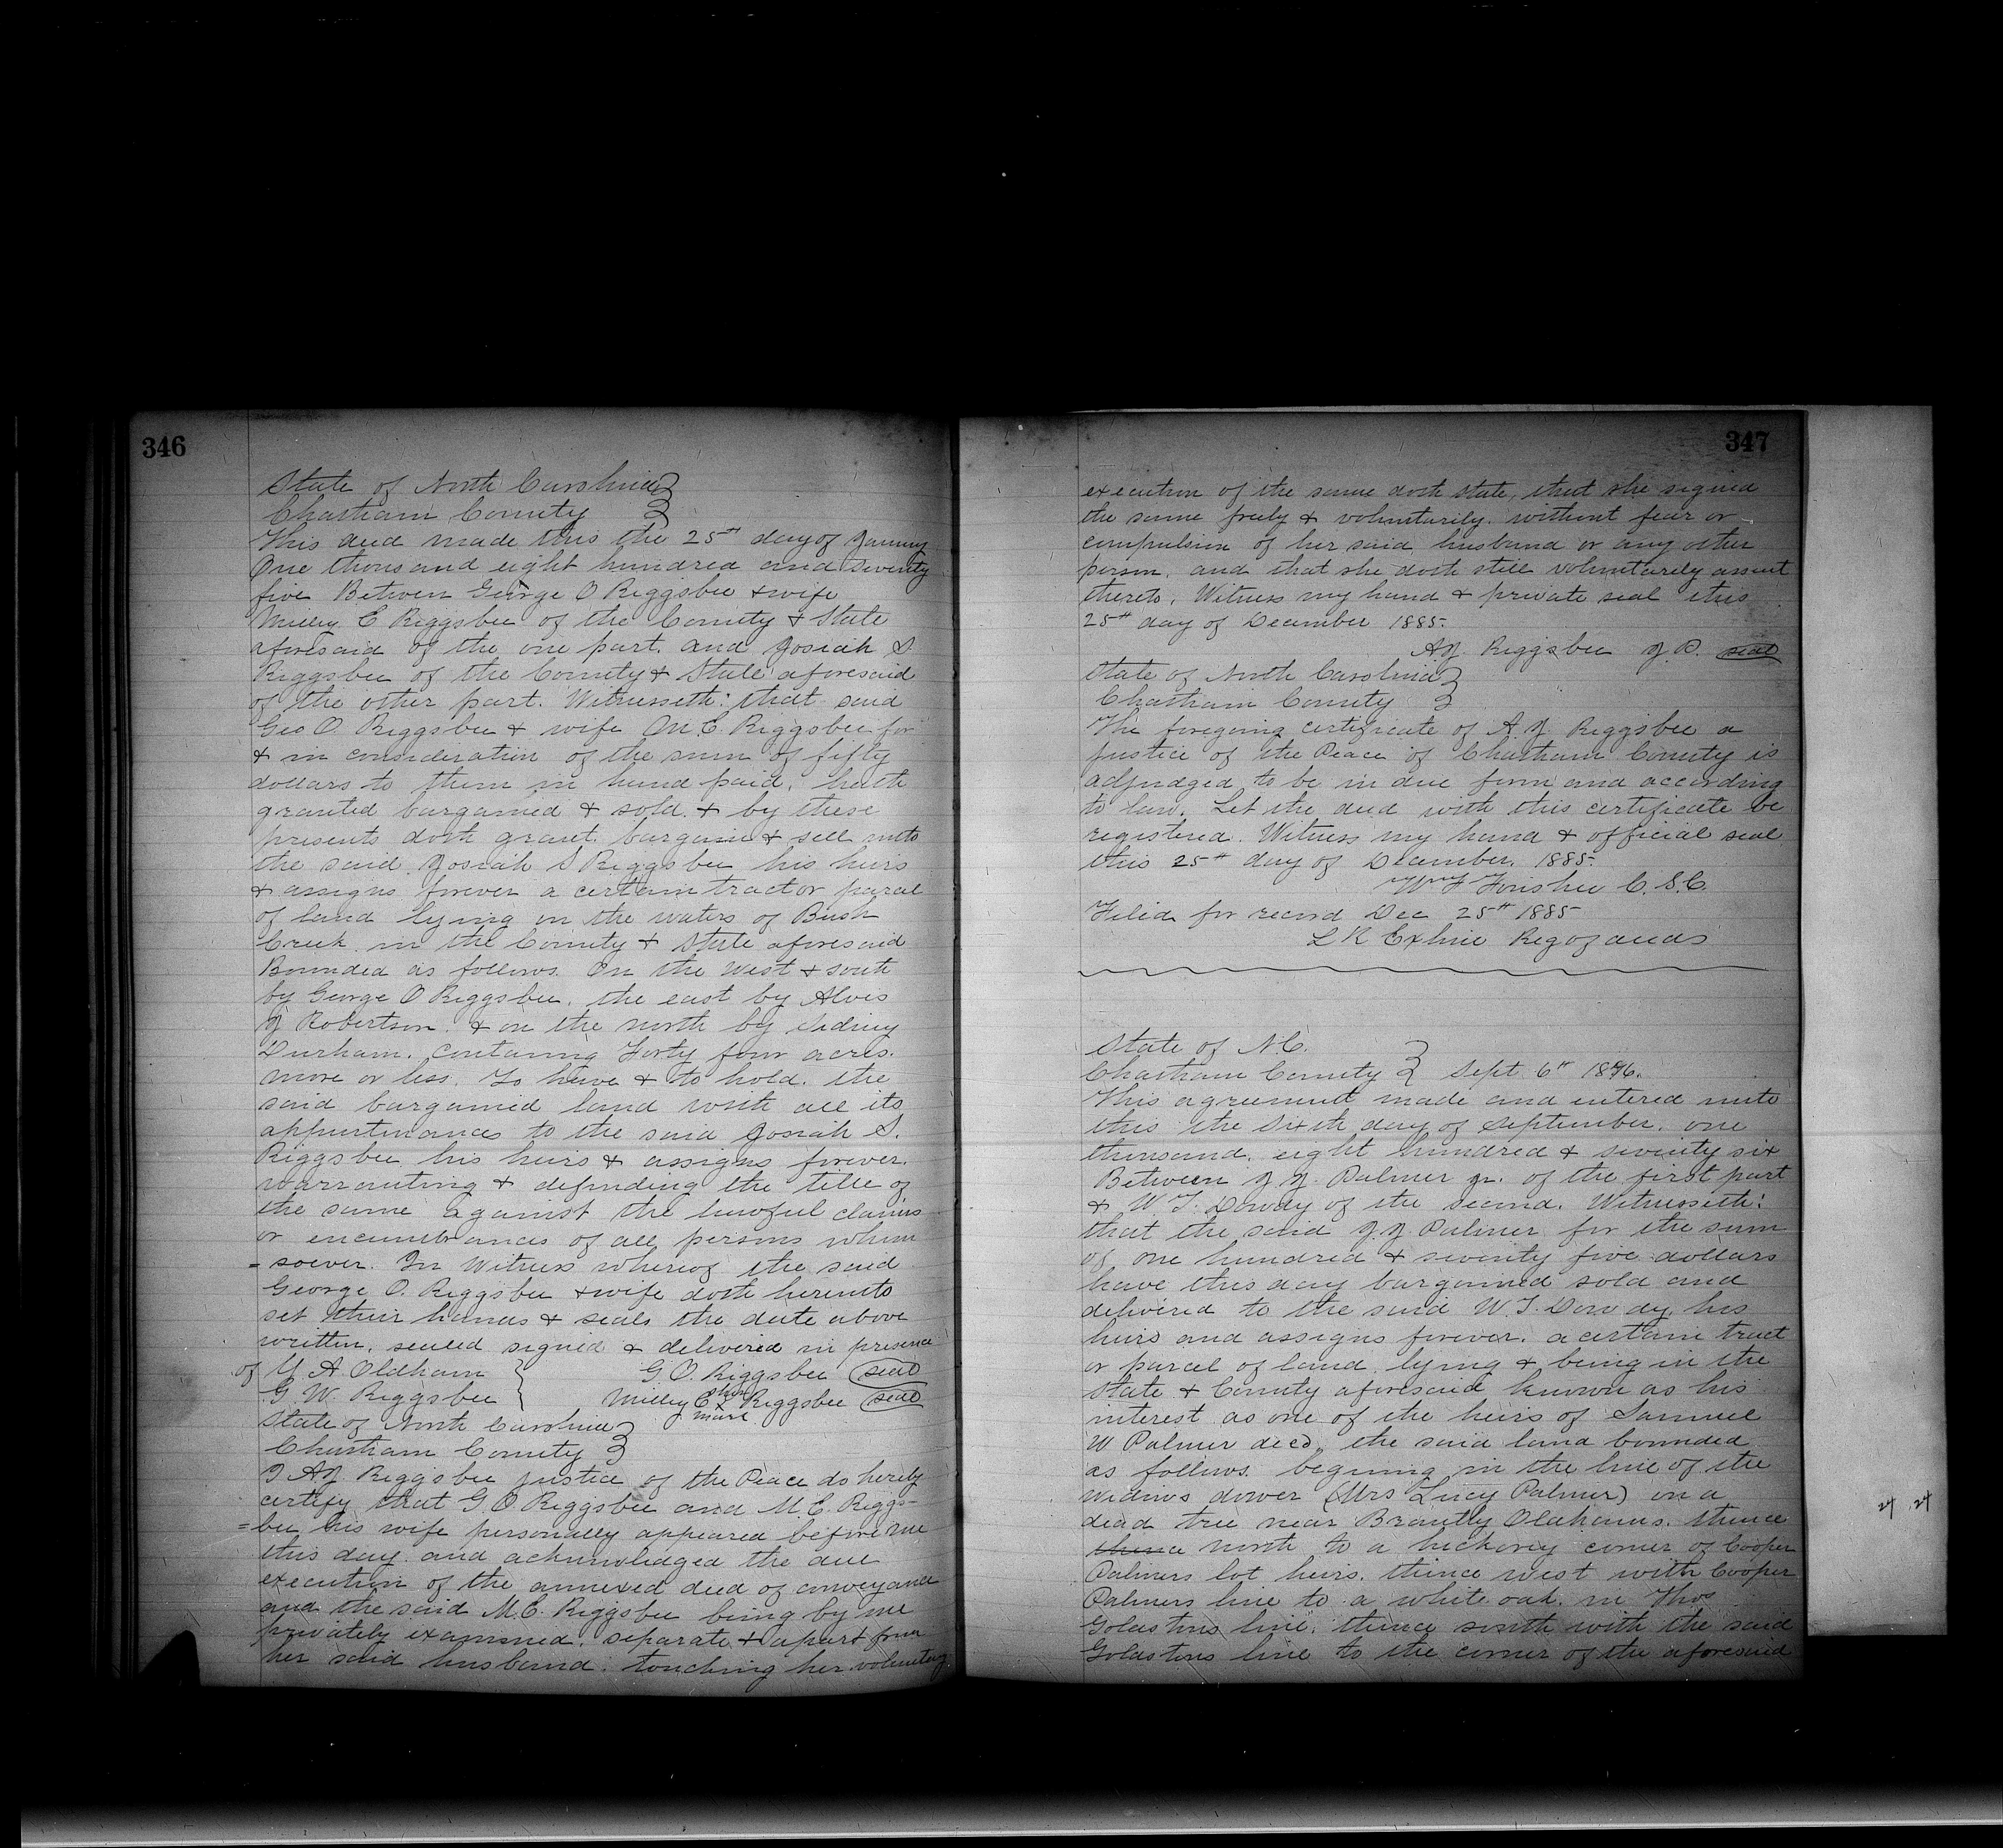 346
State of North Carolina
Chatham County
This deed made this the 25th day of January
One thousand eight hundred and seventy
five Between George O Riggsbee & wife
Milley E Riggsbee of the County & State
aforesaid of the one part. and Josiah S.
Riggsbee of the County & State aforesaid
of the other part. Witnesseth: that said
Geo O. Riggsbee & wife M. E. Riggsbee for
& in consideration of the sum of fifty
dollars to them in hand paid, hath
granted bargained & sold. & by these
presents doth grant. bargain & sell unto
the said Josiah S Riggsbee his heirs
& assigns forever a certain tract or parcel
of land lying on the waters of Bush
Creek in the County & State aforesaid
Bounded as follows. On the West & south
by George O Riggsbee. the east by Alvis
J Robertson. & on the north by Sidney
Durham. containg Forty four acres.
more or less. To have & to hold. the
said bargained land with all its
appurtinances to the said Josiah S.
Riggsbee his heirs & assigns forever.
warranting & defending the title of
the same against the lawful claims
or encumbrances of all persons whom
=soever. In Witness whereof the said
George O. Riggsbee & wife doth hereunto
set their hands & seals the date above
written. sealed signed & delivered in presence
of Y A. Oldham G. O. Riggsbee seal
G. W. Riggsbee Milley E her x mark Riggsbee seal
State of North Carolina
Chatham County
I AJ Riggsbee justice of the Peace do hereby
certify that G O. Riggsbee and M. E. Riggs-
=bee his wife personally appeared before me
this day. and acknowledged the due
execution of the annexed deed of conveyance
and the said M. E. Riggsbee being by me
privately examined, separate & apart from
her said husband. touching her voluntary
347
execution of the same doth state, that she signed
the same freely & voluntarily. without fear or
compulsion of her said husband or any other
person. and that she doth still voluntarily assent
thereto. Witness my hand & private seal this
25th day of December 1885.
AJ. Riggsbee J. P. seal
State of North Carolina
Chatham County
The foregoing certificate of A. J. Riggsbee a
justice of the Peace of Chatham County is
adjudged to be in due form and according
to law. Let the deed with this certificate be
registered. Witness my hand & official seal
this 25th day of December. 1885.
Wm F Foushee C. S. C.
Filed for record Dec 25th 1885
L R Exline Reg of deeds
State of N. C.
Chatham County Sept. 6th 1876.
This agreement made and entered unto
this the sixth day of September. one
thousand. eight hundred & seventy six
Between J. J. Palmer jr. of the first part
& W. T. Dowdy of the second. Witnesseth:
that the said J. J. Palmer for the sum
of one hundred & seventy five dollars
have this day bargained sold and
delivered to the said W. T. Dowdy his
heirs and assigns forever. a certain tract
or parcel of land lying & being in the
State & County aforesaid known as his
interest as one of the heirs of Samuel
W Palmer decd, the said land bounded
as follows. begining in the line of the
widows dower (Mrs Lucy Palmer) on a
dead tree near Brantly Oldhams. thence
thence north to a hickory corner of Cooper
Palmers lot heirs. thence west with Cooper
Palmers line to a white oak. in Thos
Golastons line. thence south with the said
Golastons line to the corner of the aforesaid
24 24